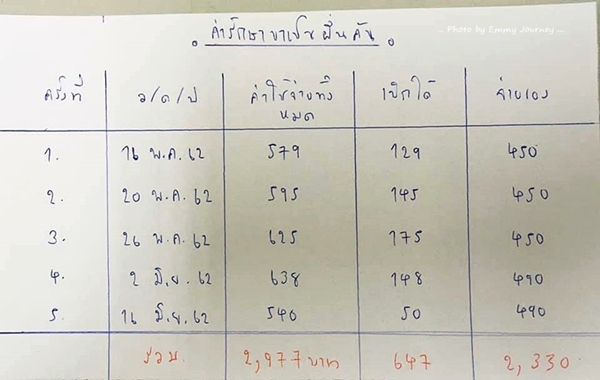 ... Photo by Emmy Journey ...
ค่ารักษาขาเป็นผื่นคัน
ครั้งที่ ว/ด/ป ค่าใช้จ่ายทั้งหมด เบิกได้ จ่ายเอง
1. 16 พ.ค. 62 579 129 450
2. 20 พ.ค. 62 595 145 450
3. 26 พ.ค. 62 625 175 450
4. 2 มิ.ย. 62 638 148 490
5. 16 มิ.ย. 62 540 50 490
รวม 2,977 บาท 647 2,330